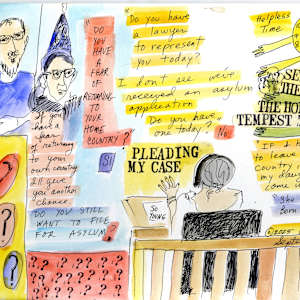 "DO
YOU
HAVE
A
FEAR
OF
RETURNING
TO
YOUR
HOME
COUNTRY?"
"Do you have
a lawyer
to represent
you today?
I don't see we've
received an asylum
application
Do you have
one today?"
No
Helpless
Time
SE
THE
THE HO
TEMPEST
If you
have a
fear
of returning
to your
own country
I'll give
you another
chance.
DO YOU STILL
WANT TO FILE
FOR ASYLUM?
SI
PLEADING
MY CASE
SO
THING
IF I
to leave
country
my dau
come
She
born
©2025
? ? ? ? ? ? ?